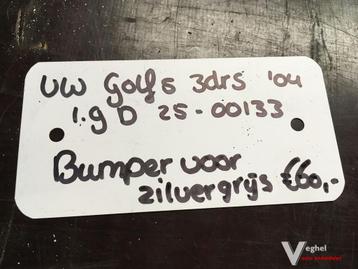 VW Golf 5 3drs '04
1.9 D 25-00133
Bumper voor
zilvergrijs €60,-
Veghel